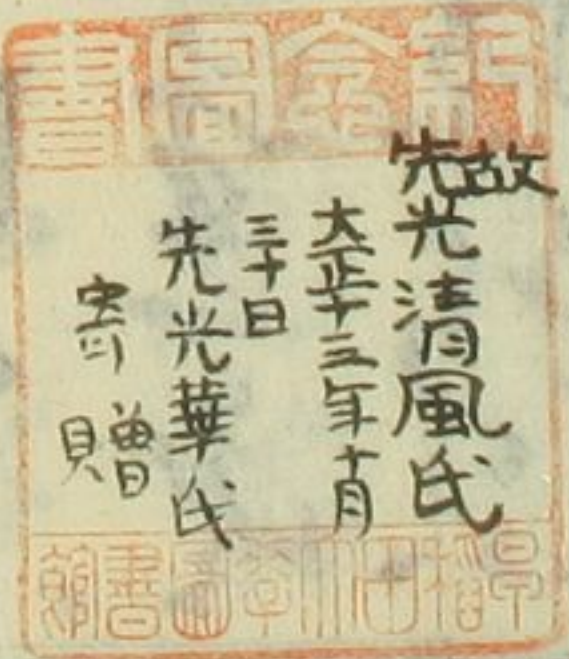 紀念圖書
故
先光清風氏
大正十三年十月
三十日
先光華氏
寄贈
早稻田大學圖書館